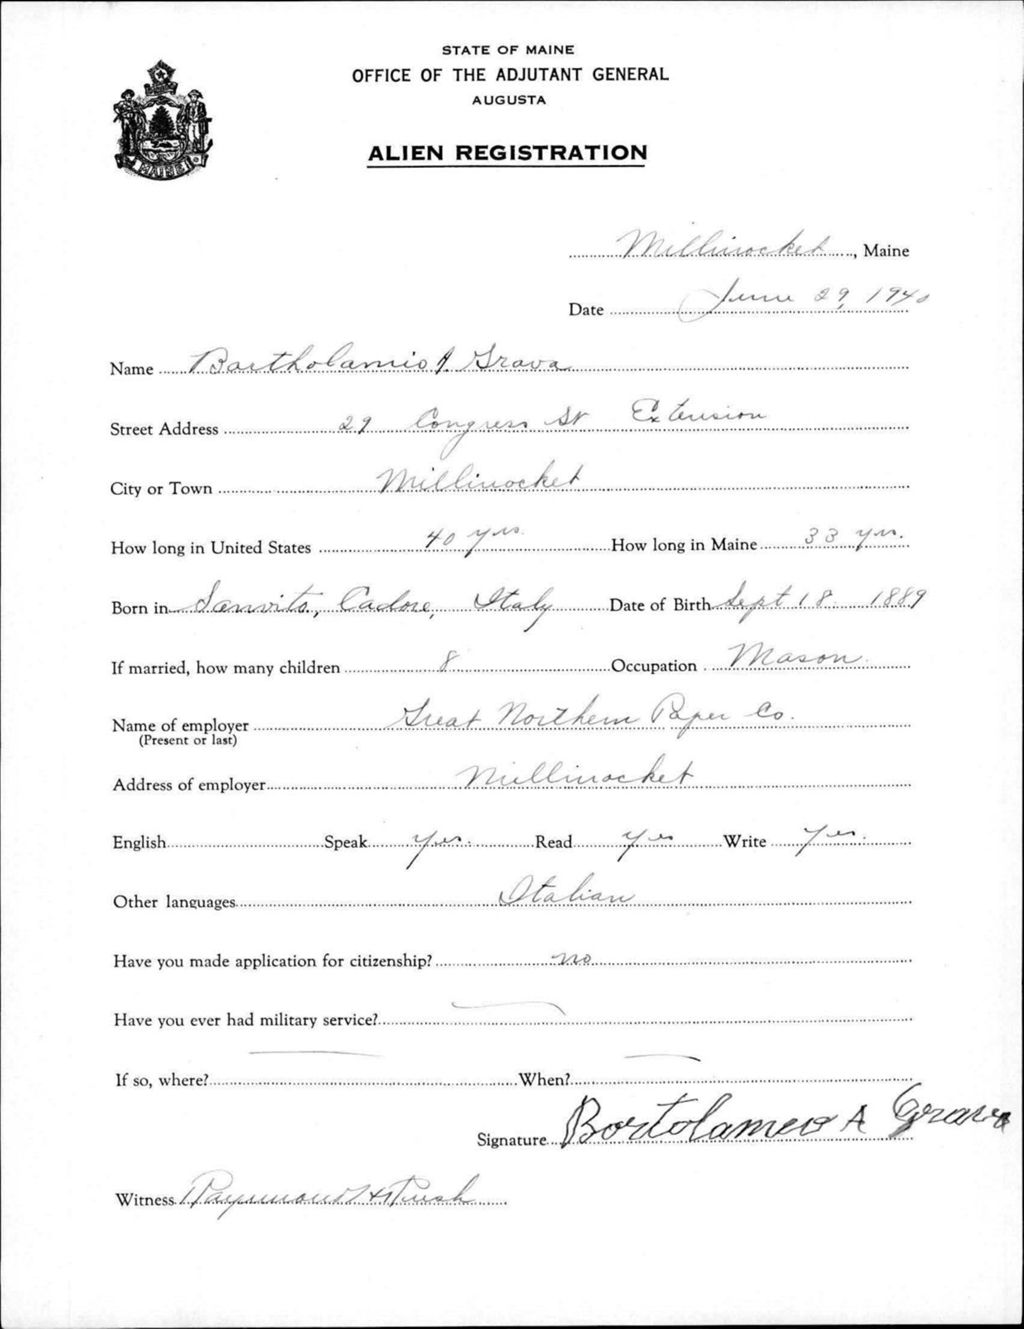 STATE OF MAINE
OFFICE OF THE ADJUTANT GENERAL
AUGUSTA
ALIEN REGISTRATION
MAINE
Millinocket, Maine
Date June 29, 1940
Name Bartholamio A. Grava
Street Address 29 Congress St Extension
City or Town Millinocket
How long in United States 40 yrs. How long in Maine 33 yrs.
Born in Sanvito, Cadore, Italy Date of Birth Sept 18 1889
If married, how many children 8 Occupation Mason.
Name of employer Great Northern Paper Co.
(Present or last)
Address of employer Millinocket
English Speak Yes. Read Yes Write Yes.
Other languages Italian
Have you made application for citizenship? no
Have you ever had military service? —
If so, where? — When? —
Signature Bortolameo A Grava
Witness Raymond H Rush